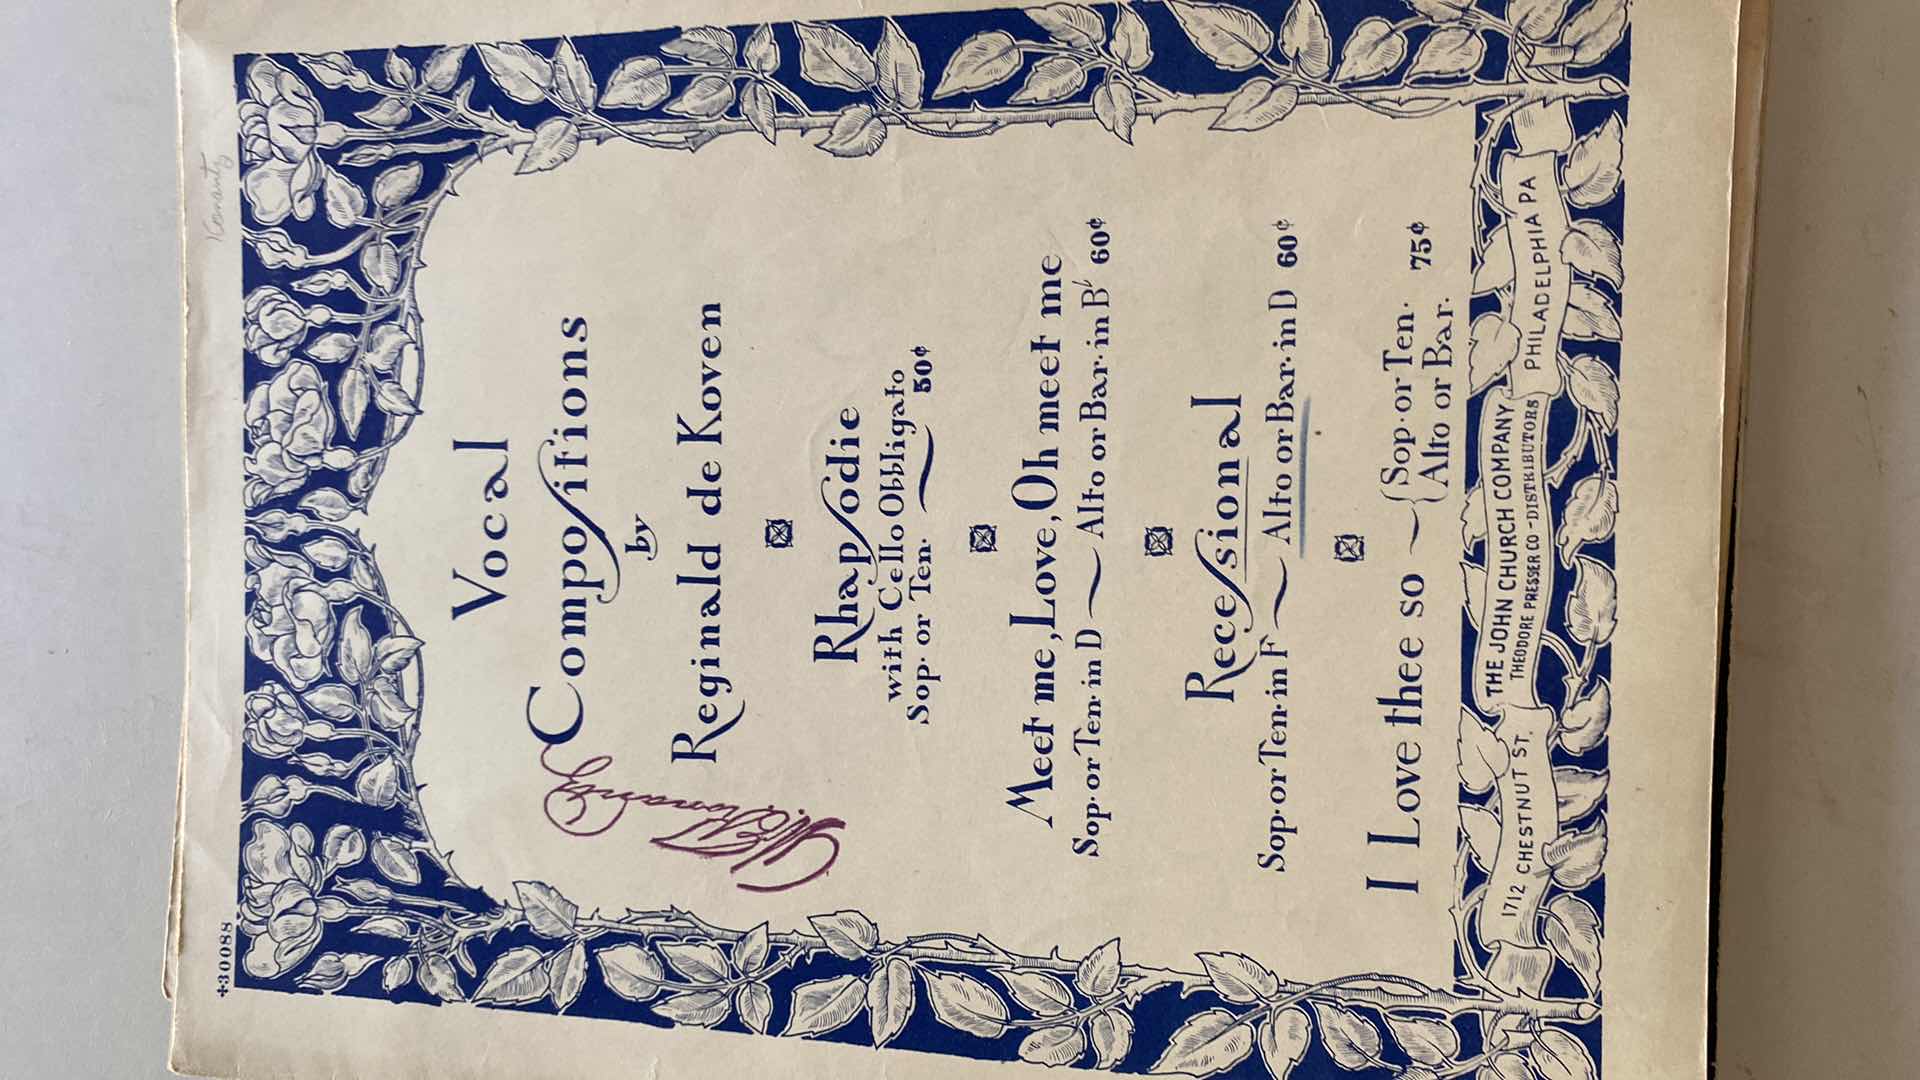 +30088
Vocal
Compositions
by
Reginald de Koven
Rhapsodie
with Cello Obbligato
Sop. or Ten. 50¢
Meet me, Love, Oh meet me
Sop. or Ten. in D Alto or Bar. in B♭ 60¢
Recessional
Sop. or Ten. in F Alto or Bar. in D 60¢
I Love thee so { Sop. or Ten. 75¢
{ Alto or Bar.
THE JOHN CHURCH COMPANY
1712 CHESTNUT ST. THEODORE PRESSER CO-DISTRIBUTORS PHILADELPHIA PA